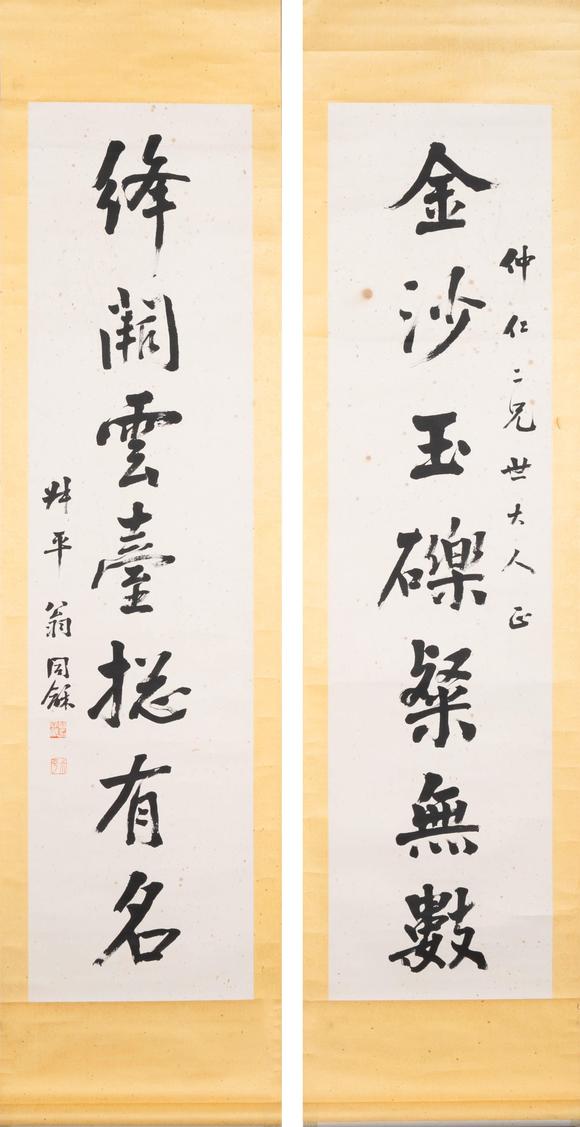 仲仁二兄世大人正
金沙玉礫粲無數
絳闕雲臺捴有名
叔平翁同龢